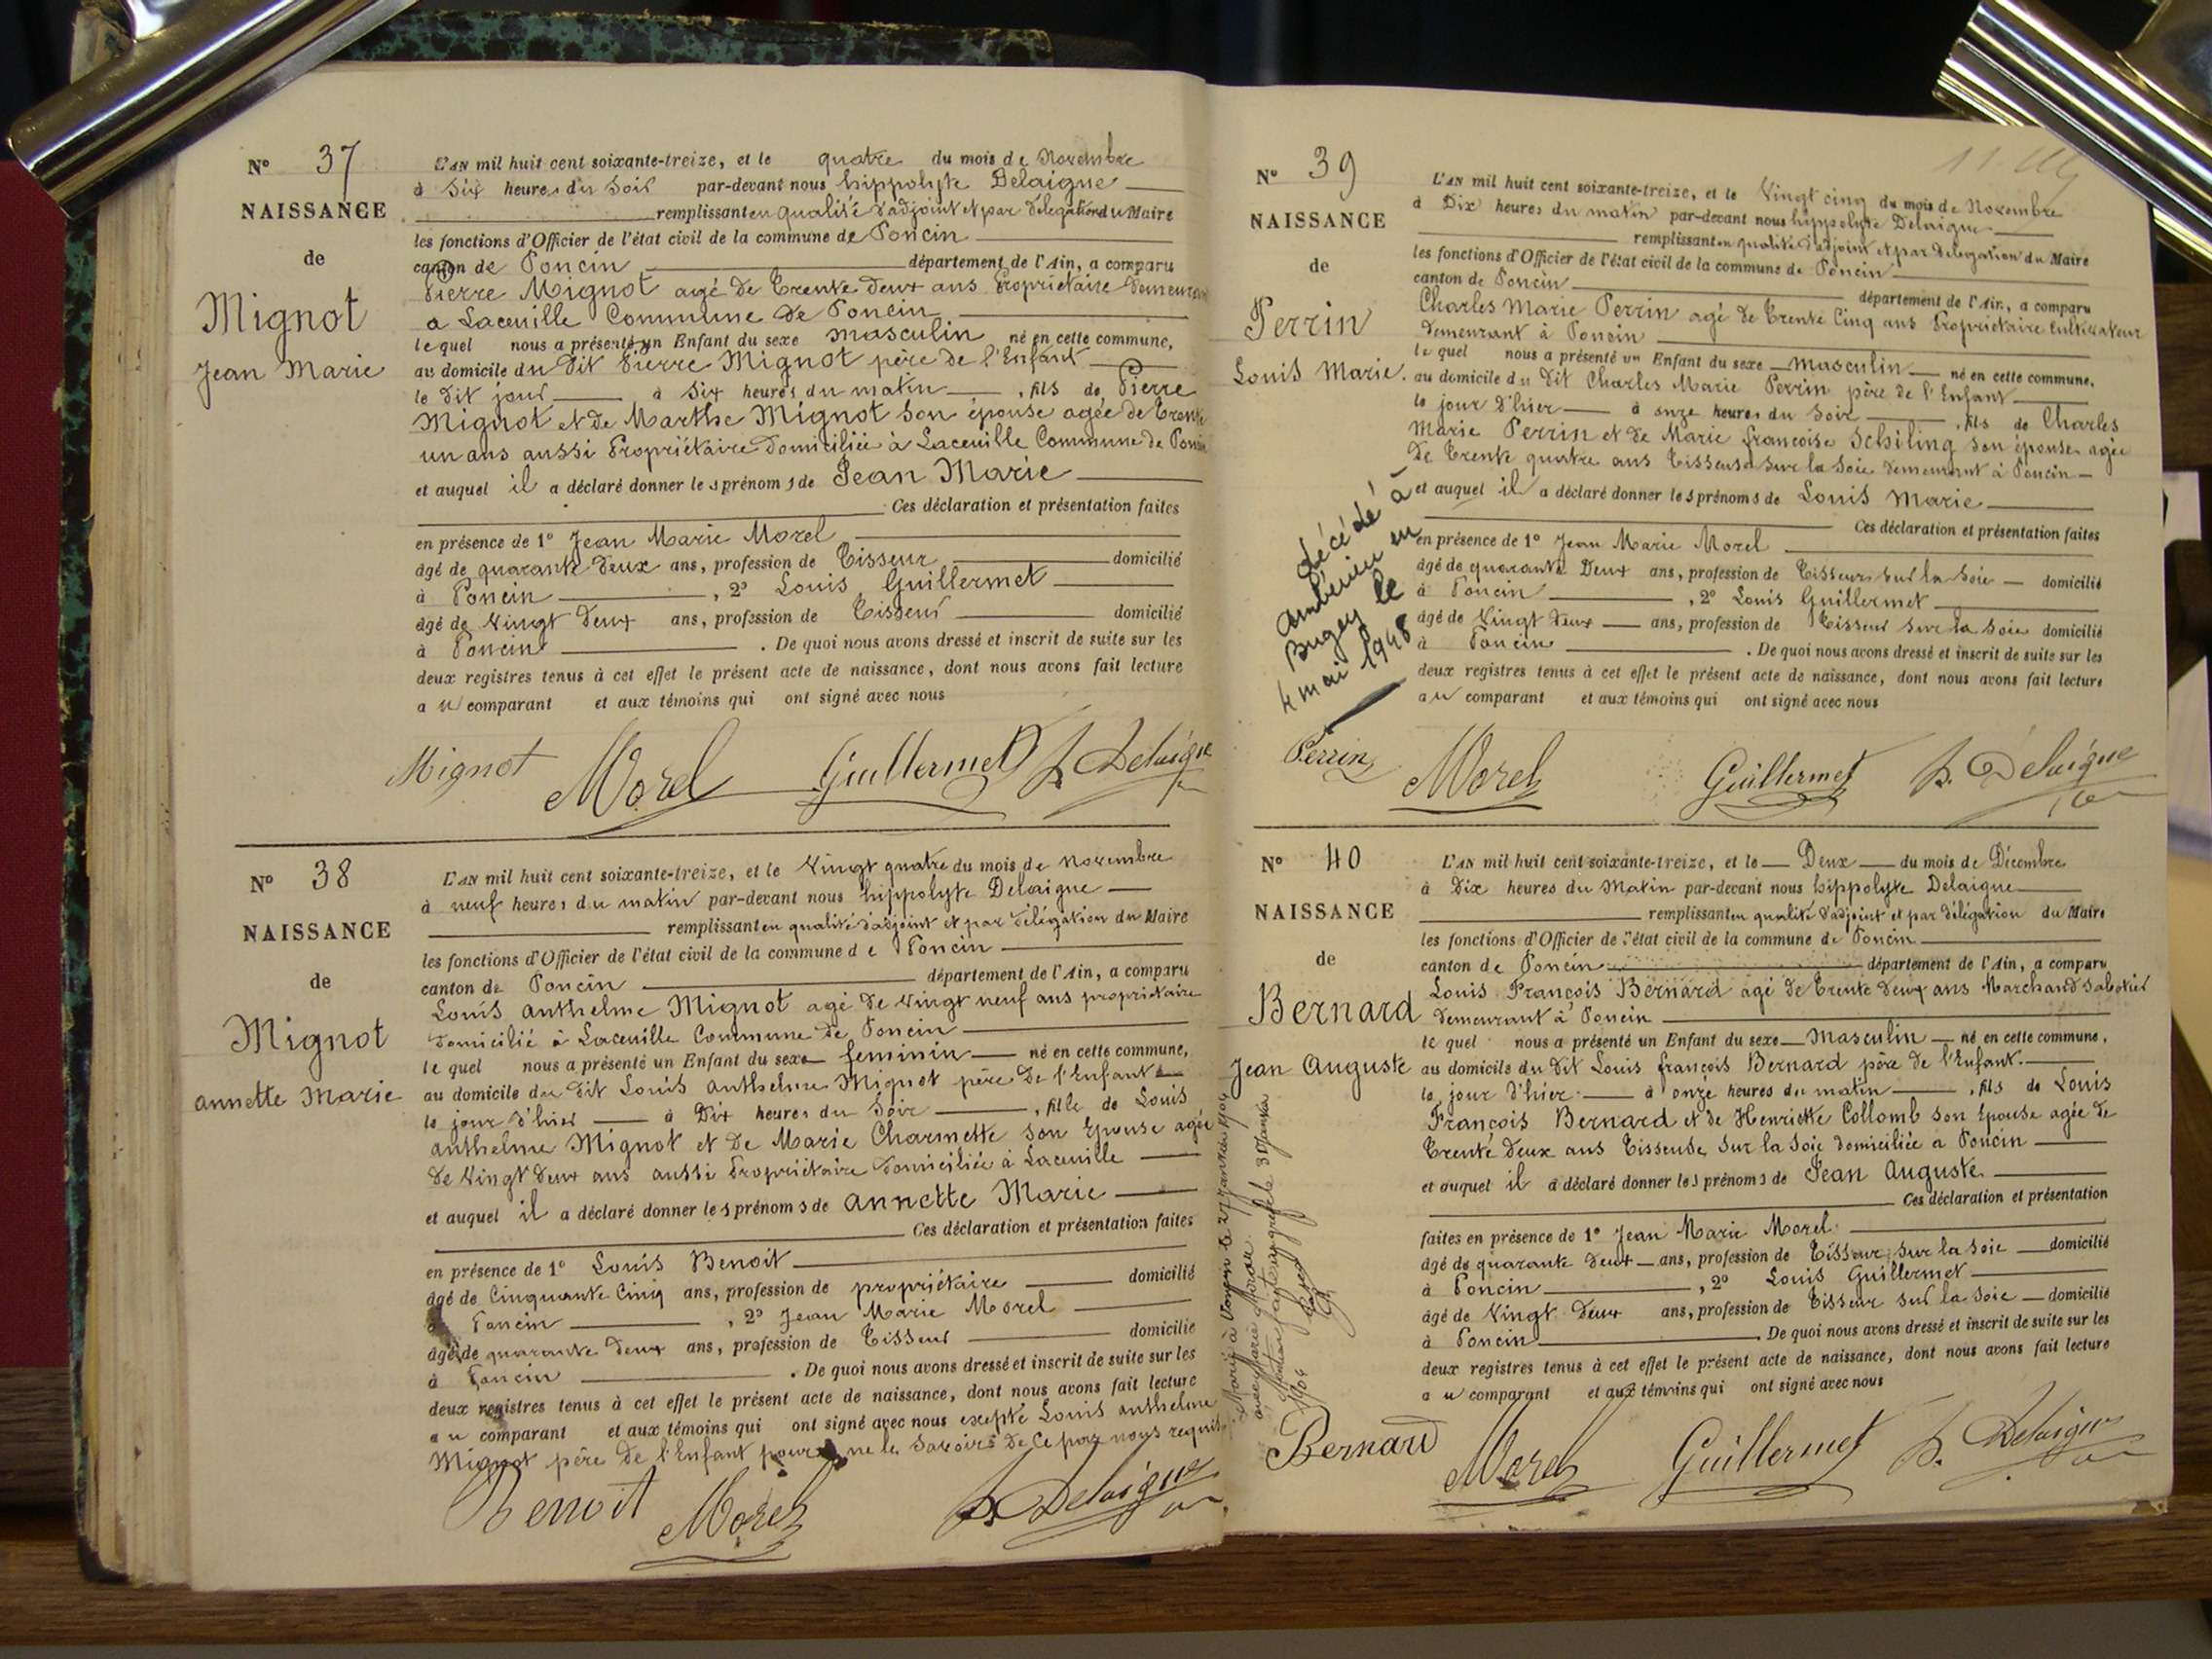 N° 37
NAISSANCE
de
Mignot
Jean Marie
L'AN mil huit cent soixante-treize, et le quatre du mois de Novembre
à Six heures du Soir par-devant nous hippolyte Delaigne
remplissant en qualité d'adjoint et par délégation du Maire
les fonctions d'Officier de l'état civil de la commune de Poncin
canton de Poncin département de l'Ain, a comparu
Pierre Mignot agé de Trente deux ans Propriétaire demeurant
a Laceuille Commune de Poncin
le quel nous a présenté un Enfant du sexe masculin né en cette commune,
au domicile du dit Pierre Mignot père de l'Enfant
le dit jour à Six heures du matin, fils de Pierre
Mignot et de Marthe Mignot son épouse agée de Trente
un ans aussi Propriétaire domiciliée à Laceuille Commune de Poncin
et auquel il a déclaré donner les prénoms de Jean Marie
Ces déclaration et présentation faites
en présence de 1° Jean Marie Morel
âgé de quarante deux ans, profession de Tisseur domicilié
à Poncin, 2° Louis Guillermet
âgé de Vingt deux ans, profession de Tisseur domicilié
à Poncin. De quoi nous avons dressé et inscrit de suite sur les
deux registres tenus à cet effet le présent acte de naissance, dont nous avons fait lecture
au comparant et aux témoins qui ont signé avec nous
Mignot Morel Guillermet h. Delaigne
N° 38
NAISSANCE
de
Mignot
annette Marie
L'AN mil huit cent soixante-treize, et le Vingt quatre du mois de Novembre
à neuf heures du matin par-devant nous hippolyte Delaigne
remplissant en qualité d'adjoint et par délégation du Maire
les fonctions d'Officier de l'état civil de la commune de Poncin
canton de Poncin département de l'Ain, a comparu
Louis anthelme Mignot agé de Vingt neuf ans propriétaire
domicilié à Laceuille Commune de Poncin
le quel nous a présenté un Enfant du sexe feminin né en cette commune,
au domicile du dit Louis anthelme Mignot père de l'Enfant
le jour d'hier à Dix heures du Soir, fille de Louis
anthelme Mignot et de Marie Charmette son Epouse agée
de Vingt Deux ans aussi Propriétaire domiciliée à Laceuille
et auquel il a déclaré donner les prénoms de annette Marie
Ces déclaration et présentation faites
en présence de 1° Louis Benoit
âgé de Cinquante Cinq ans, profession de propriétaire domicilié
à Poncin, 2° Jean Marie Morel
âgé de quarante deux ans, profession de Tisseur domicilié
à Poncin. De quoi nous avons dressé et inscrit de suite sur les
deux registres tenus à cet effet le présent acte de naissance, dont nous avons fait lecture
au comparant et aux témoins qui ont signé avec nous excepté Louis anthelme
Mignot père de l'Enfant pour ne le Savoir de ce par nous requis
Benoit Morel h. Delaigne
N° 39
NAISSANCE
de
Perrin
Louis Marie.
L'AN mil huit cent soixante-treize, et le Vingt cinq du mois de Novembre
à Dix heures du matin par-devant nous hippolyte Delaigne
remplissant en qualité d'adjoint et par délégation du Maire
les fonctions d'Officier de l'état civil de la commune de Poncin
canton de Poncin département de l'Ain, a comparu
Charles Marie Perrin agé de Trente Cinq ans Propriétaire Cultivateur
demeurant à Poncin
le quel nous a présenté un Enfant du sexe masculin né en cette commune,
au domicile du dit Charles Marie Perrin père de l'Enfant
le jour d'hier à onze heures du Soir, fils de Charles
Marie Perrin et de Marie françoise Schiling son épouse agée
de Trente quatre ans Tisseuse sur la Soie demeurant à Poncin
et auquel il a déclaré donner les prénoms de Louis Marie
Ces déclaration et présentation faites
en présence de 1° Jean Marie Morel
âgé de quarante Deux ans, profession de Tisseur sur la Soie domicilié
à Poncin, 2° Louis Guillermet
âgé de Vingt deux ans, profession de Tisseur sur la Soie domicilié
à Poncin. De quoi nous avons dressé et inscrit de suite sur les
deux registres tenus à cet effet le présent acte de naissance, dont nous avons fait lecture
au comparant et aux témoins qui ont signé avec nous
décédé à
Ambérieu en
Bugey le
4 mai 1948
Perrin Morel Guillermet h. Delaigne
N° 40
NAISSANCE
de
Bernard
Jean Auguste
L'AN mil huit cent soixante-treize, et le Deux du mois de Décembre
à Dix heures du Matin par-devant nous hippolyte Delaigne
remplissant en qualité d'adjoint et par délégation du Maire
les fonctions d'Officier de l'état civil de la commune de Poncin
canton de Poncin département de l'Ain, a comparu
Louis François Bernard agé de Trente Deux ans Marchand Sabotier
demeurant à Poncin
le quel nous a présenté un Enfant du sexe Masculin né en cette commune,
au domicile du dit Louis françois Bernard père de l'Enfant.
le jour d'hier à onze heures du matin, fils de Louis
François Bernard et de Henriette Collomb son Epouse agée de
Trente Deux ans Tisseuse sur la Soie domiciliée a Poncin
et auquel il a déclaré donner les prénoms de Jean Auguste
Ces déclaration et présentation
faites en présence de 1° Jean Marie Morel
âgé de quarante deux ans, profession de Tisseur sur la Soie domicilié
à Poncin, 2° Louis Guillermet
âgé de Vingt Deux ans, profession de Tisseur sur la Soie domicilié
à Poncin. De quoi nous avons dressé et inscrit de suite sur les
deux registres tenus à cet effet le présent acte de naissance, dont nous avons fait lecture
au comparant et aux témoins qui ont signé avec nous
Marié à le 27 Janvier 1904
avec Marie
Mention faite au greffe le 30 Janvier
1904
Bernard Morel Guillermet h. Delaigne